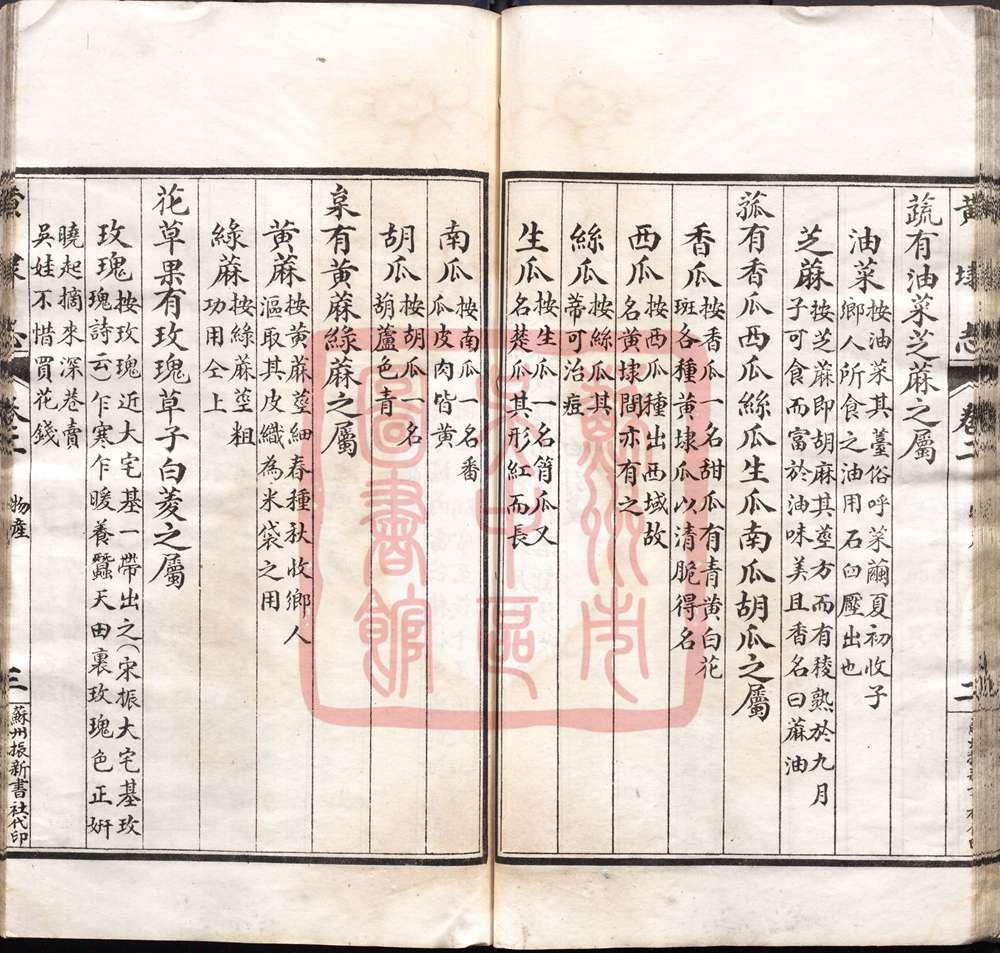 黄埭志
卷二
二
蔬有油菜芝蔴之屬
油菜 按油菜其薹俗呼菜薾夏初收子
鄉人所食之油用石臼壓出也
芝蔴 按芝蔴即胡麻其莖方而有稜熟於九月
子可食而富於油味美且香名曰蔴油
蓏有香瓜西瓜絲瓜生瓜南瓜胡瓜之屬
香瓜 按香瓜一名甜瓜有青黄白花
斑各種黄埭瓜以清脆得名
西瓜 按西瓜種出西域故
名黄埭間亦有之
絲瓜 按絲瓜其
蒂可治痘
生瓜 按生瓜一名筲瓜又
名菜瓜其形紅而長
南瓜 按南瓜一名番
瓜皮肉皆黄
胡瓜 按胡瓜一名
葫蘆色青
枲有黄蔴綠蔴之屬
黄蔴 按黄蔴莖細春種秋收鄉人
漚取其皮織為米袋之用
綠蔴 按綠蔴莖粗
功用仝上
花草果有玫瑰草子白菱之屬
玫瑰 按玫瑰近大宅基一帶出之(宋振大宅基玫
瑰詩云)乍寒乍暖養蠶天田裏玫瑰色正妍
曉起摘來深巷賣
吳娃不惜買花錢
黄埭志
卷二
物產
三
蘇州振新書社代印
蘇州市
吳中區
圖書館